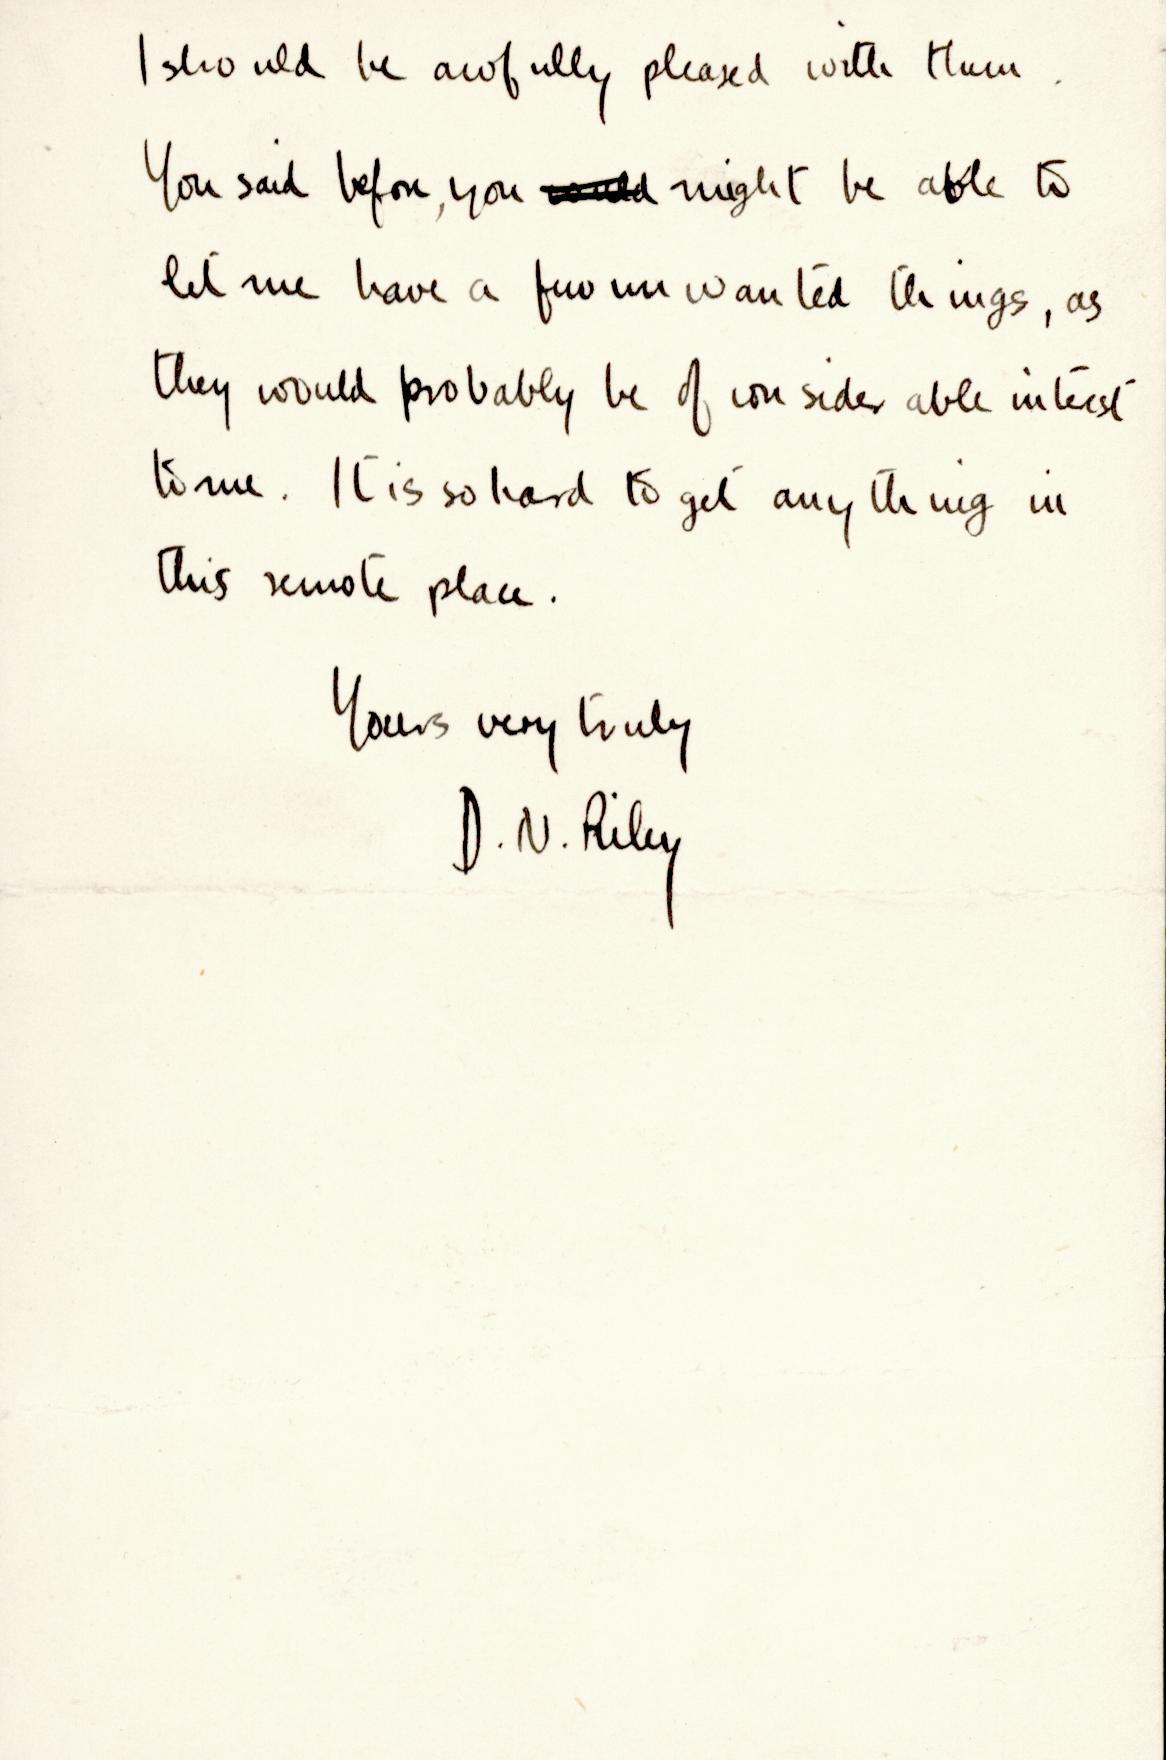 I should be awfully pleased with them.
You said before, you would might be able to
let me have a few unwanted things, as
they would probably be of considerable interest
to me. It is so hard to get anything in
this remote place.
Yours very truly
D. N. Riley